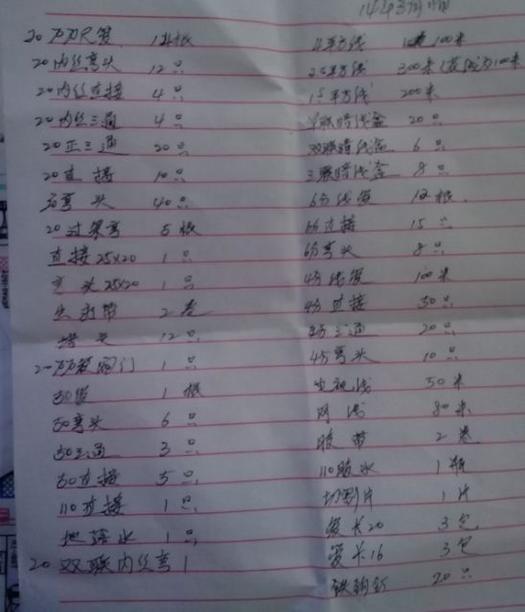 20 内丝弯头 12只
20内丝直接 4只
20内丝三通 4只
20正三通 20只
20直接 10只
弯头 40只
20过桥弯 5根
直接25x20 1只
弯头25x20 1只
生料带 2卷
堵头 12只
阀门 1只
50管 1根
50弯头 6只
50三通 3只
50直接 5只
110直接 1只
地落水 1只
20 双联内丝弯 1
4平方线 100米
2.5平方线 300米
1.5平方线 200米
单联暗线盒 20只
双联暗线盒 6只
三联暗线盒 8只
6分线管 12根
6分直接 15只
6分弯头 8只
4分线管 100米
4分直接 50只
4分三通 20只
4分弯头 10只
电视线 50米
网线 80米
胶带 2卷
110胶水 1瓶
切割片 1片
管卡20 3包
管卡16 3包
20只